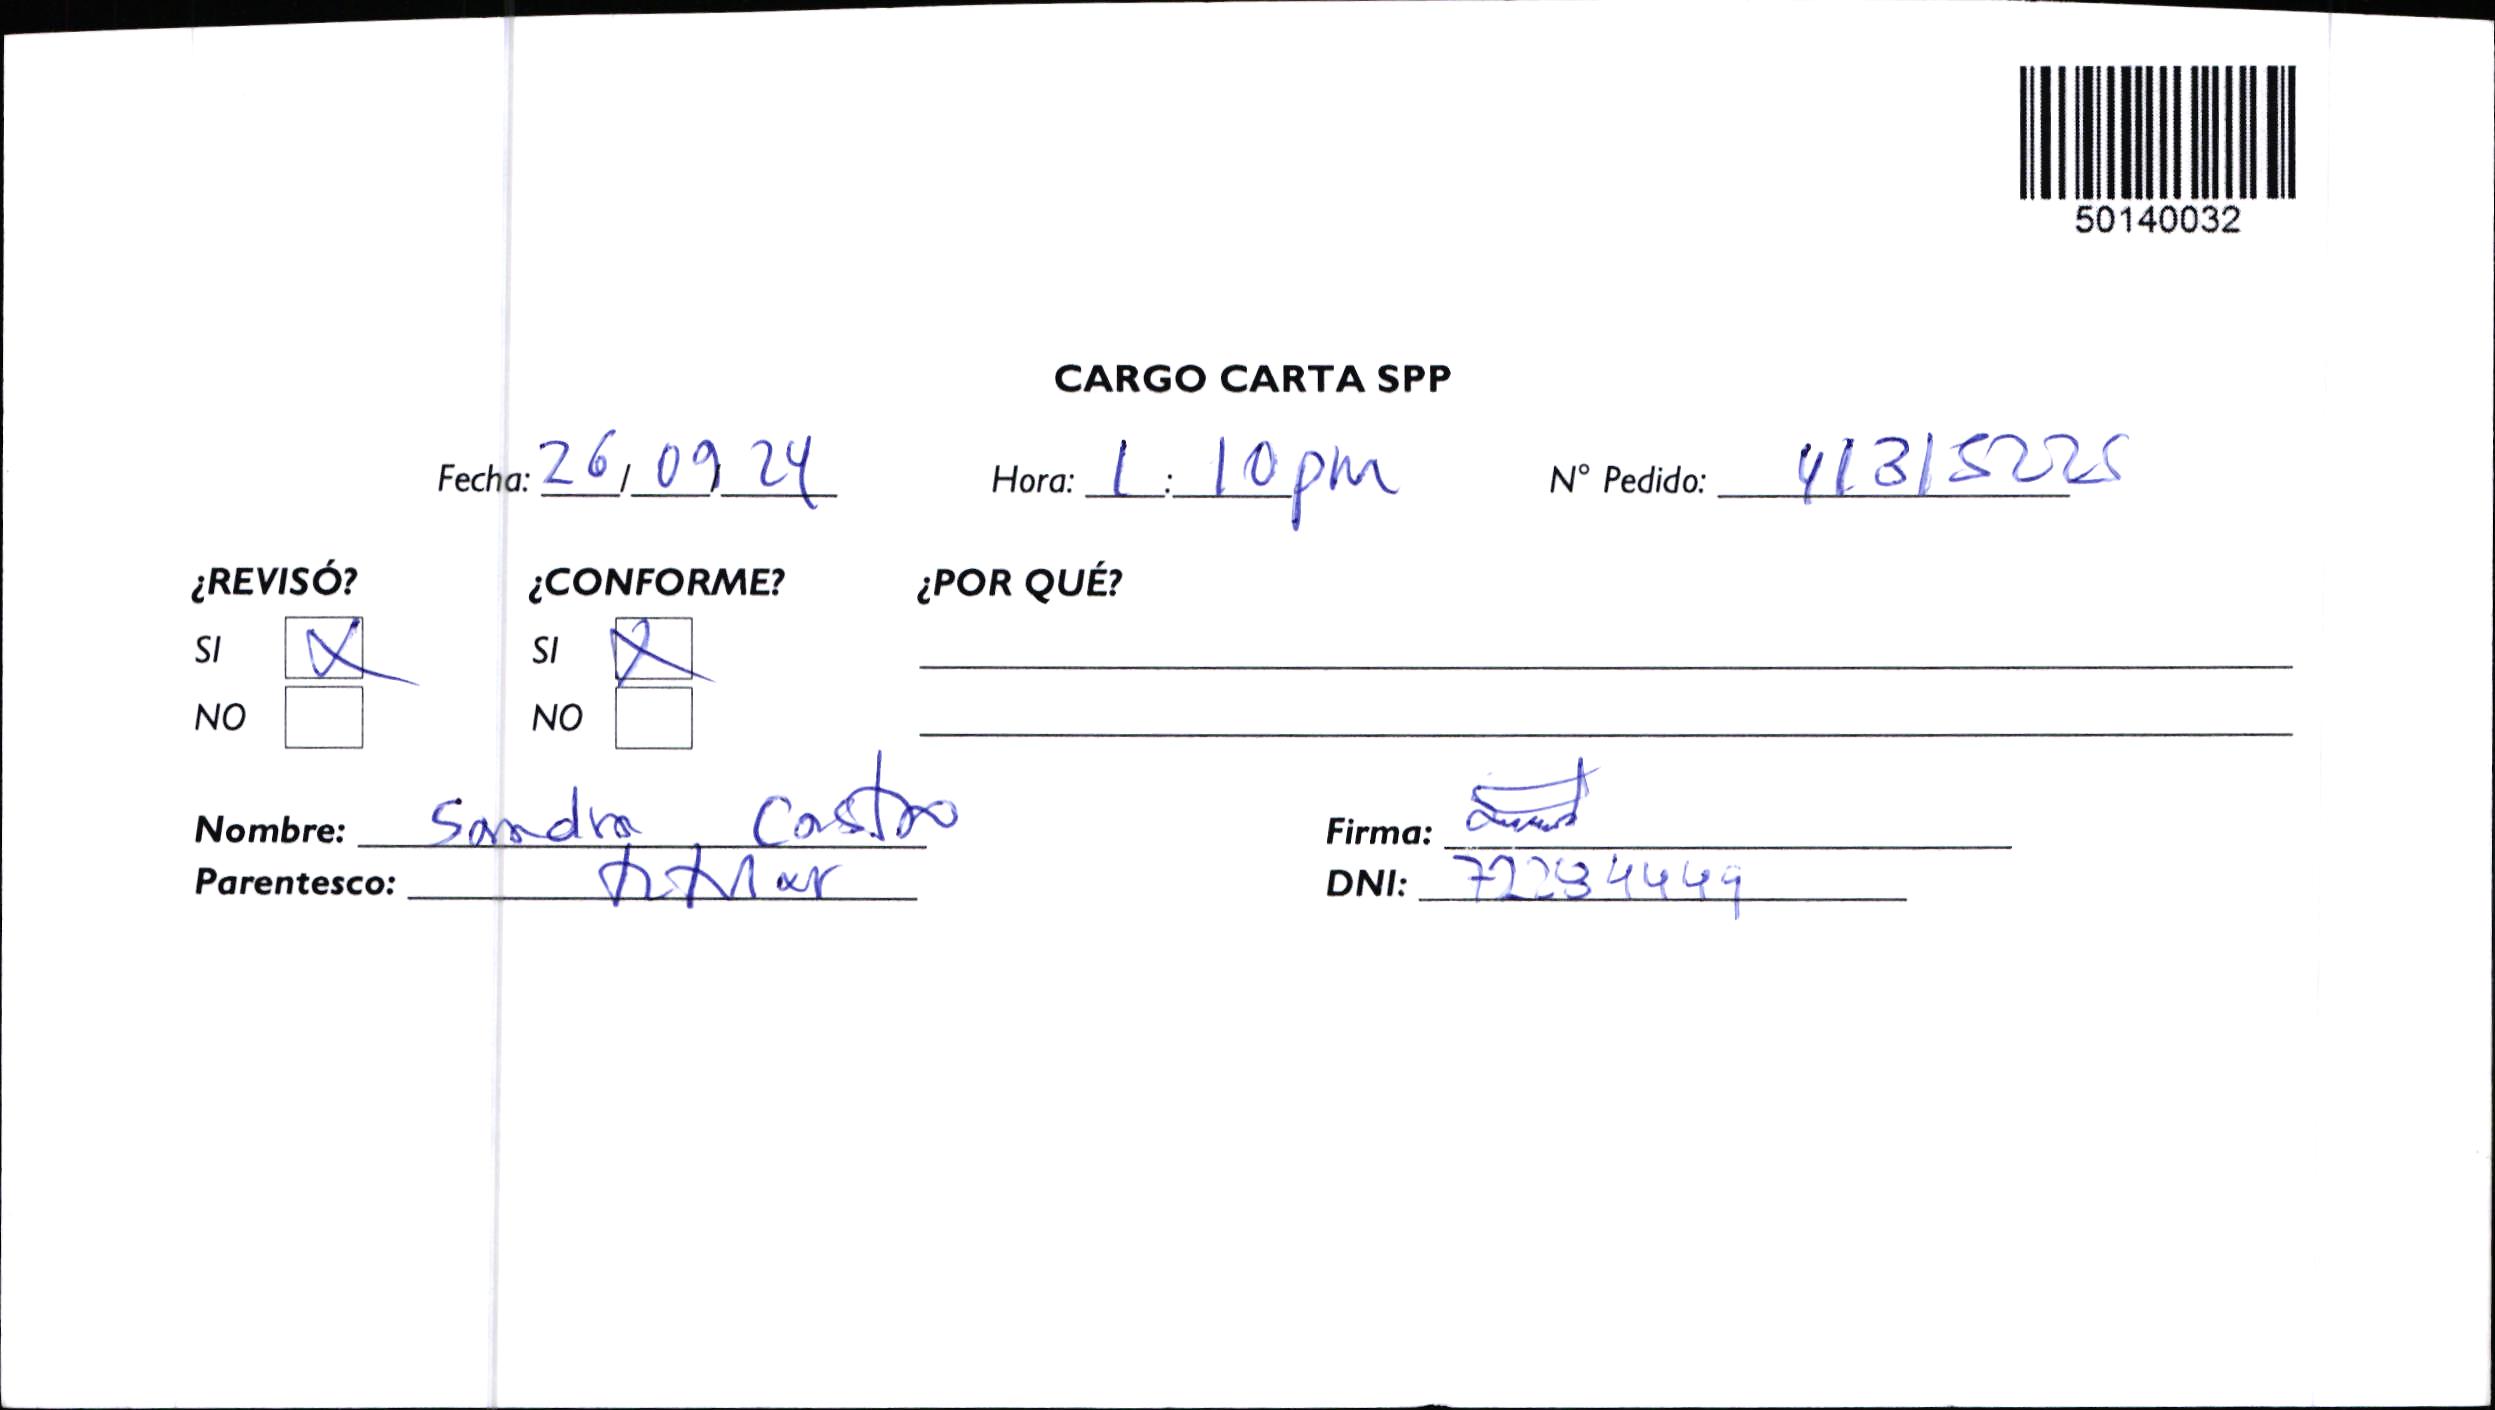 50140032
CARGO CARTA SPP
Fecha: 26/09/24 Hora: 1:10pm N° Pedido: 41315225
¿REVISÓ? ¿CONFORME? ¿POR QUÉ?
SI SI
NO NO
Nombre: Sandra Castro Firma:
Parentesco: titular DNI: 72234449